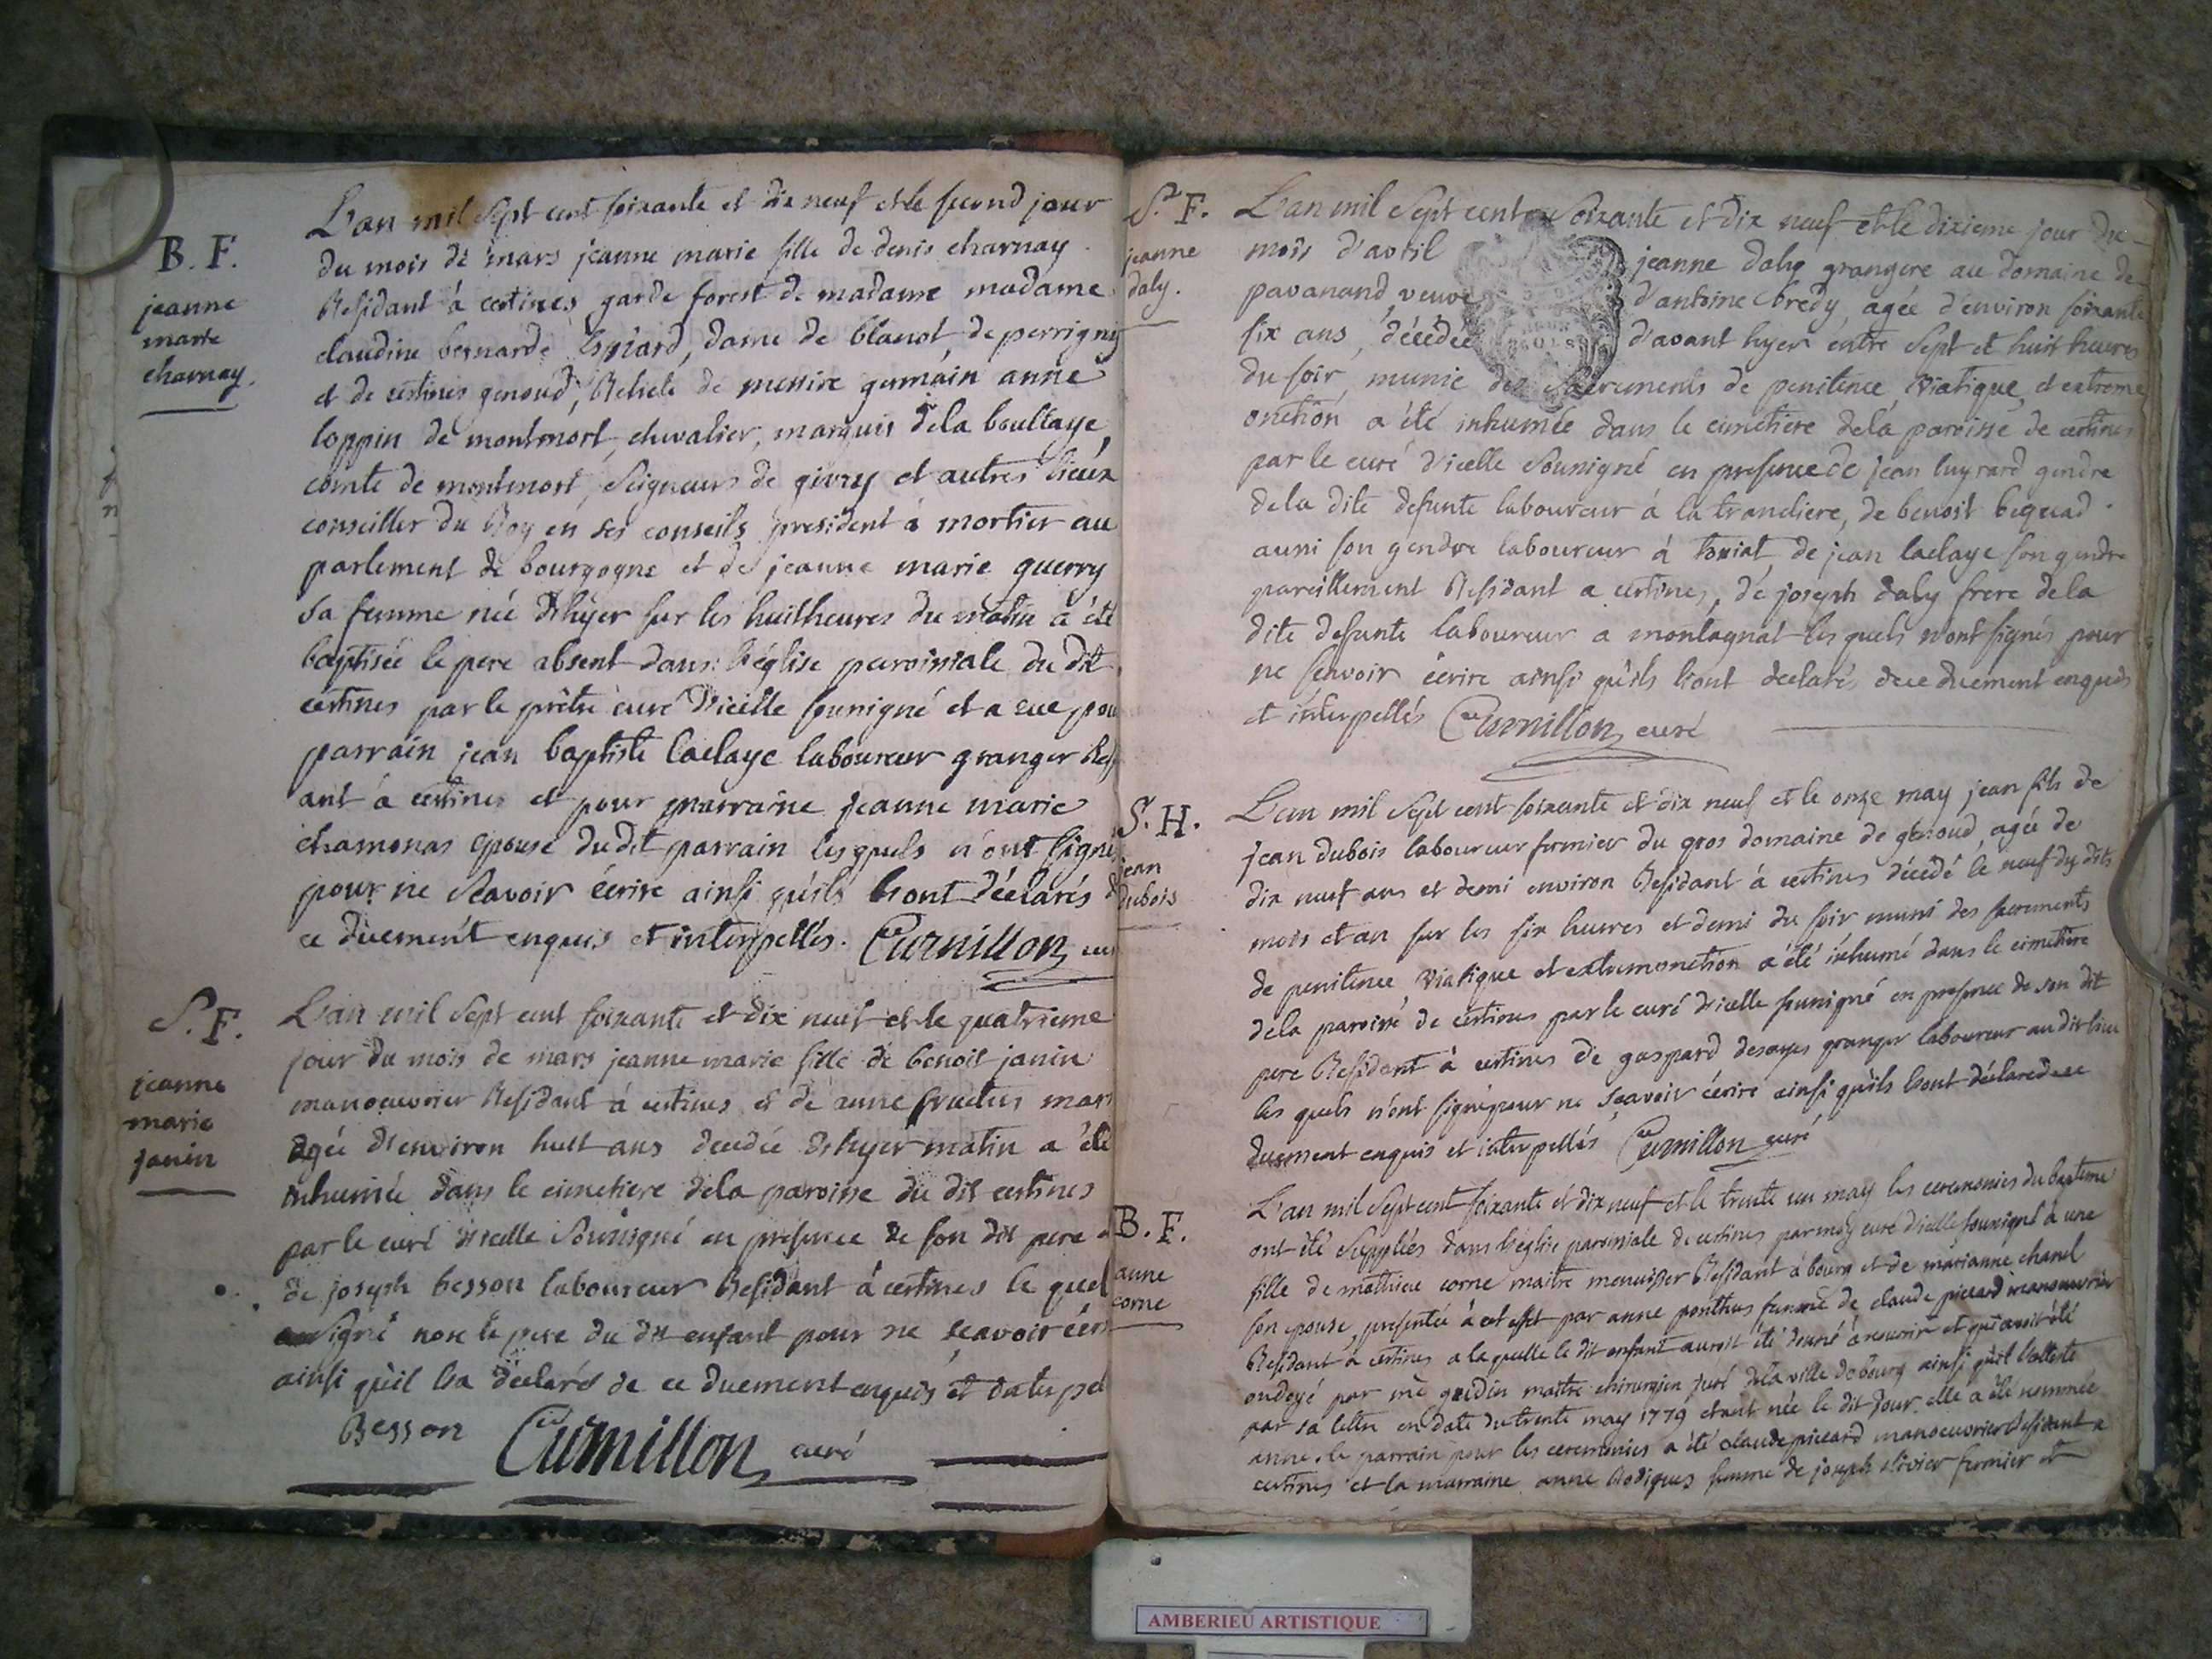 B. F.
jeanne
marie
charnay.
L'an mil sept cent soixante et dix neuf et le second jour
du mois de mars jeanne marie fille de denis charnay
Residant à certines garde forest de madame madame
claudine bernarde Espiard, dame de blanot de perrigny
et de certines genoud, Relicte de messire germain anne
loppin de montmort, chevalier, marquis de la boullaye,
comte de montmort, seigneurs de givry et autres lieux
conseiller du Roy en ses conseils president à mortier au
parlement de bourgogne et de jeanne marie guerry
sa femme née d'hyer sur les huit heures du matin a été
baptisée le pere absent dans l'église paroissiale du dit
certines par le prêtre curé d'icelle soussigné et a eue pou
parrain jean baptiste laclaye laboureur granger Resi
ant à certines et pour marraine jeanne marie
chamonas epouse du dit parrain les quels n'ont signés
pour ne Scavoir écrire ainsi qu'ils l'ont déclarés d
ce düement enquis et interpellés. Curnillon cu
S. F.
jeanne
marie
janin
L'an mil sept cent soixante et dix neuf et le quatrieme
jour du mois de mars jeanne marie fille de benoit janin
manoeuvrier Residant à certines et de anne fructus mar
agée d'environ huit ans decedée d'hyer matin a été
inhumée dans le cimetiere de la paroisse du dit certines
par le curé d'icelle Soussigné en presence de son dit pere
de joseph besson laboureur Residant à certines le quel
signé non le pere du dit enfant pour ne scavoir écri
ainsi qu'il l'a déclaré de ce duement enquis et interpel
Besson Curnillon curé
S. F.
jeanne
daly.
L'an mil sept cent soixante et dix neuf et le dixieme jour du
mois d'avril jeanne daly grangere au domaine de
pavanand, veuve d'antoine bredy, agée d'environ soixante
six ans, décédée d'avant hyer entre sept et huit heures
du soir, munie des sacrements de penitence, viatique, et extreme
onction a été inhumée dans le cimetiere de la paroisse de certines
par le curé d'icelle Soussigné en presence de jean luyrard gendre
de la dite defunte laboureur à la tranclière, de benoit bequad
aussi son gendre laboureur à tossiat, de jean laclaye son gendre
pareillement Residant a certines, de joseph daly frere de la
dite defunte laboureur a montagnat les quels n'ont signés pour
ne scavoir écrire ainsi qu'ils l'ont declarés de ce duement enquis
et interpellés Curnillon curé
S. H.
jean
dubois
L'an mil sept cent soixante et dix neuf et le onze may jean fils de
jean dubois laboureur fermier du gros domaine de genoud, agée de
dix neuf ans et demi environ Residant à certines décédé le neuf du dits
mois et an sur les six heures et demi du soir muni des sacrements
de penitence viatique et extremonction a été inhumé dans le cimetiere
de la paroisse de certines par le curé d'icelle soussigné en presence de son dit
pere Residant à certines de gaspard desayes granger laboureur au dit lieu
les quels n'ont signé pour ne scavoir écrire ainsi qu'ils l'ont déclaré de ce
duement enquis et interpellés Curnillon curé
B. F.
anne
corne
L'an mil sept cent soixante et dix neuf et le trente un may les ceremonies du baptême
ont été suppléés dans l'église paroissiale de certines par moy curé d'icelle soussigné à une
fille de mathieu corne maitre menuisier Residant à bourg et de marianne chanel
son epouse, presentée à cet effet par anne ponthus femme de claude piccard manoeuvrier
Residant à certines a la quelle le dit enfant auroit été donné à nourrir et qui avoit été
ondoyé par me gridin maitre chirurgien juré de la ville de bourg ainsi qu'il l'atteste
par sa lettre en date du trente may 1779 étant née le dit jour. elle a été nommée
anne. le parrain pour les ceremonies a été claude piccard manoeuvrier Residant a
certines et la marraine anne Rodigues femme de joseph olivier fermier et
AMBERIEU ARTISTIQUE